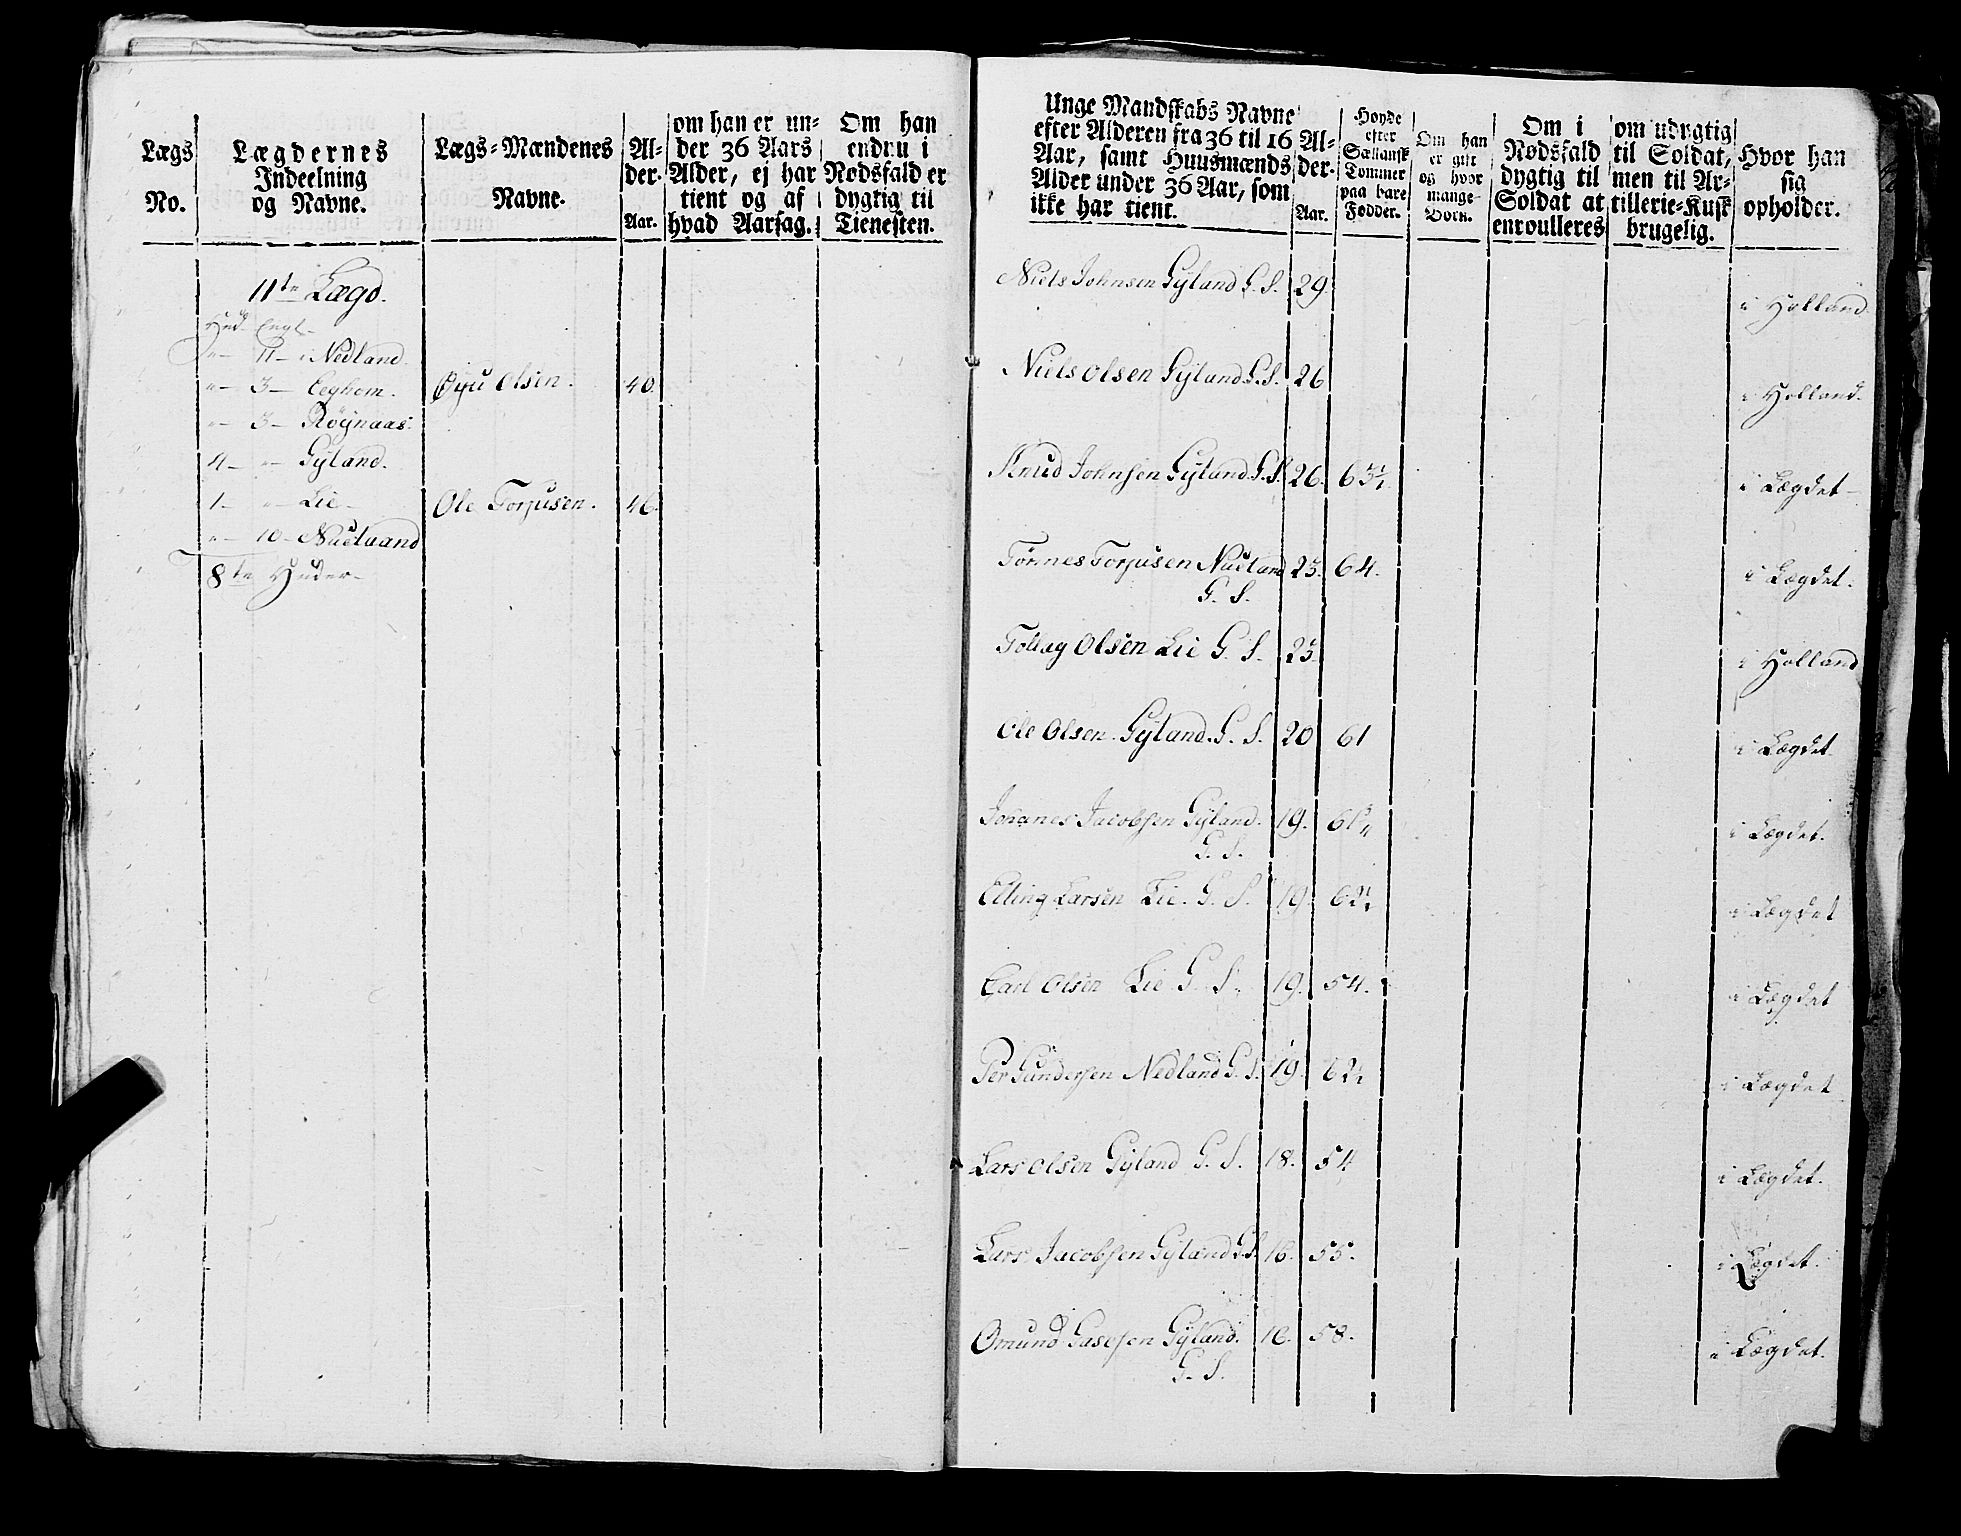 Lægs
No.
Lægdernes
Indeelning
og Navne.
Lægs-Mændenes
Navne.
Al-
der.
Aar.
om han er un-
der 36 Aars
Alder, ej har
tient og af
hvad Aarsag.
Om han
endnu i
Nødsfald er
dygtig til
Tienesten.
11te Lægd.
Hud. Engl.
" 11 - i Nedland.
" - 3 - Eeghem.
" - 3 - Röÿnaas.
4 - " - Gÿland.
1 - " - Lie -
" - 10 - Nuulaand
8te Huder -
Olsen. 40.
Ole Torjusen. 46.
Unge Mandskabs Navne
efter Alderen fra 36 til 16
Aar, samt Huusmænds
Alder under 36 Aar, som
ikke har tient.
Al-
der.
Aar.
Høyde
efter
Sællansk
Tommer
paa bare
Fødder.
Om han
er gift
og hvor
mange
Børn.
Om i
Nødsfald
dygtig til
Soldat at
enroulleres
om udygtig
til Soldat,
men til Ar-
tillerie-Kusk
brugelig.
Hvor han
sig
opholder.
Niels Johnsen Gÿland G. S. 29. i Holland.
Niels Olsen Gÿland G. S. 26 i Holland.
Knud Johnsen Gÿland G. S. 26. 63 i Lægdet -
Tönnes Torjusen Nuuland 23. 64. i Lægdet.
G. S.
Tollag Olsen Lie G. S. 23. i Holland
Ole Olsen Gÿland. G. S. 20 61 i Lægdet.
Johanes Jacobsen Gÿland. 19. 61 i Lægdet.
G. S.
Elling Larsen Lie. G. S. 19. 62 i Lægdet
Carl Olsen Lie G. S. 19. 54. i Lægdet
Per Gundersen Nedland G. S. 19. 62 i Lægdet
Lars Olsen Gÿland G. S. 18. 54 i Lægdet.
Lars Jacobsen Gÿland G. S. 16. 55. i Lægdet.
Omund Gÿland. 16. 58. i Lægdet.
G. S.